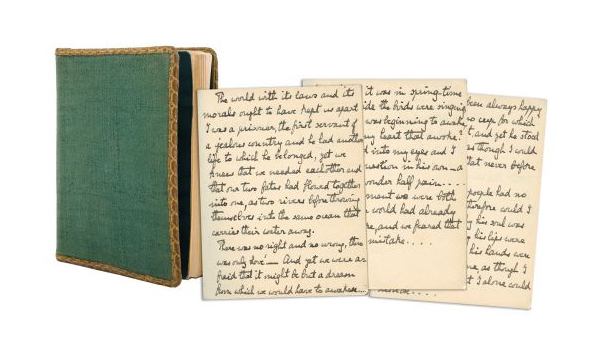 The world with its laws and its
morals ought to have kept us apart
I was a prisoner, the first servant of
a jealous country and he had another
life to which he belonged, yet we
knew that we needed each other and
that our two fates had flowed together
into one, as two rivers before throwing
themselves into the same ocean that
carries their water away.
There was no right and no wrong, there
was only love — And yet we were a
fraid that it might be but a dream
from which we would have to awaken...
it was in spring-time
ide the birds were singing
was beginning to awake
my heart that awoke?
into my eyes and I
question in his own - a
wonder half pain....
ment we were both
world had already
re, and we feared that
mistake....
been always happy
no  for which
t, and yet he stood
as though I could
that never before
people had no
therefore could I
his soul was
his lips were
his hands were
me, as though I
t I alone could